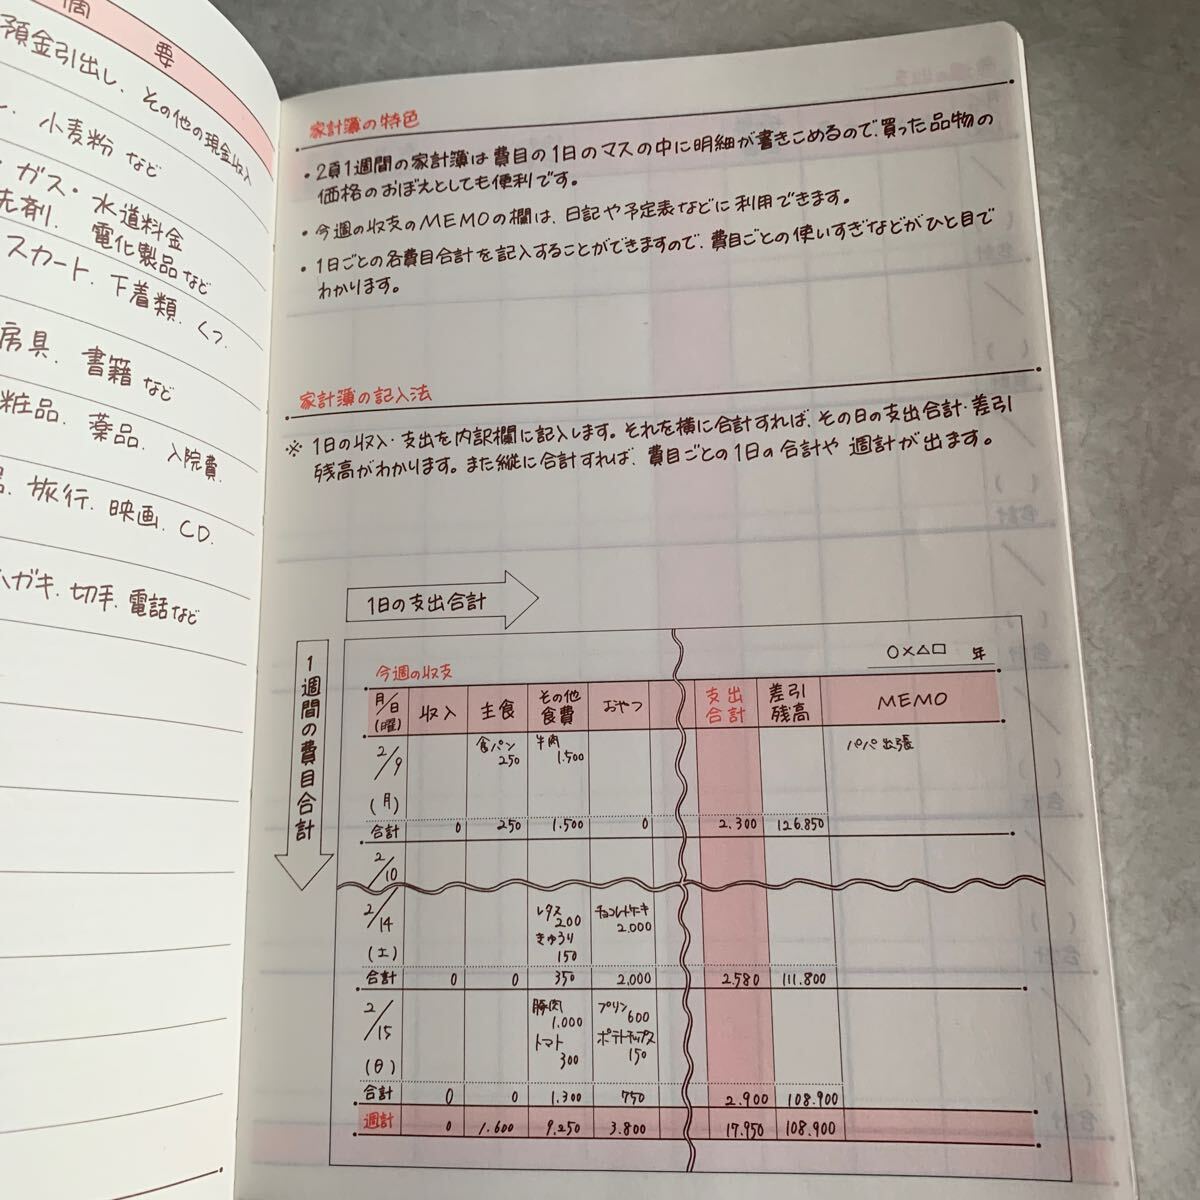 要
預金引出し、その他の現金収入
小麦粉 など
ガス・水道料金
洗剤、電化製品など
スカート、下着類、くつ
房具、書籍 など
粧品、薬品、入院費、
旅行、映画、CD、
ハガキ、切手、電話など
家計簿の特色
・2頁1週間の家計簿は費目の1日のマスの中に明細が書きこめるので、買った品物の
価格のおぼえとしても便利です。
・今週の収支のMEMOの欄は、日記や予定表などに利用できます。
・1日ごとの各費目合計を記入することができますので、費目ごとの使いすぎなどがひと目で
わかります。
家計簿の記入法
※ 1日の収入・支出を内訳欄に記入します。それを横に合計すれば、その日の支出合計・差引
残高がわかります。また縦に合計すれば、費目ごとの1日の合計や週計が出ます。
1日の支出合計
1週間の費目合計
今週の収支
○×△□ 年
月/日(曜) 収入 主食 その他食費 おやつ 支出合計 差引残高 MEMO
2/9 食パン 牛肉 パパ出張
250 1.500
(月)
合計 0 250 1.500 0 2.300 126.850
2/10
2/14 レタス チョコレートケーキ
200 2.000
きゅうり
(土) 150
合計 0 0 350 2,000 2.580 111.800
2/15 豚肉 プリン
1.000 600
トマト ポテトチップス
(日) 300 150
合計 0 0 1.300 750 2.900 108.900
週計 0 1.600 9.250 3.800 17.950 108.900